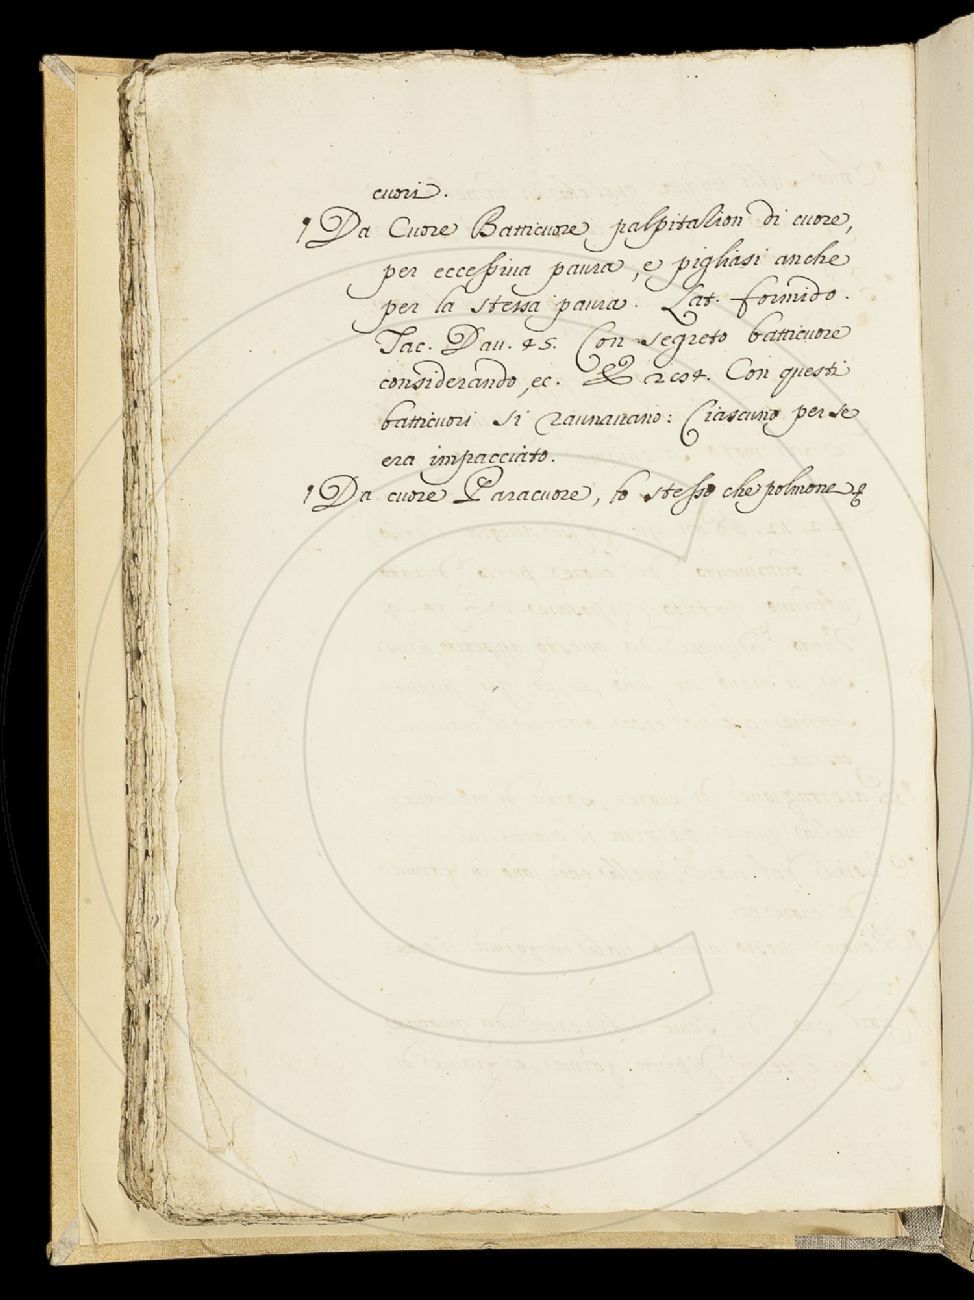 cuori.
¶ Da Cuore Batticuore palpitazion di cuore,
per eccessiva paura, e pigliasi anche
per la stessa paura. Lat. formido.
Tac. Dav. 45. Con segreto batticuore
considerando, ec. E 204. Con questi
batticuori si raunavano: Ciascuno per se
era impacciato.
¶ Da cuore Paracuore, lo stesso che polmone